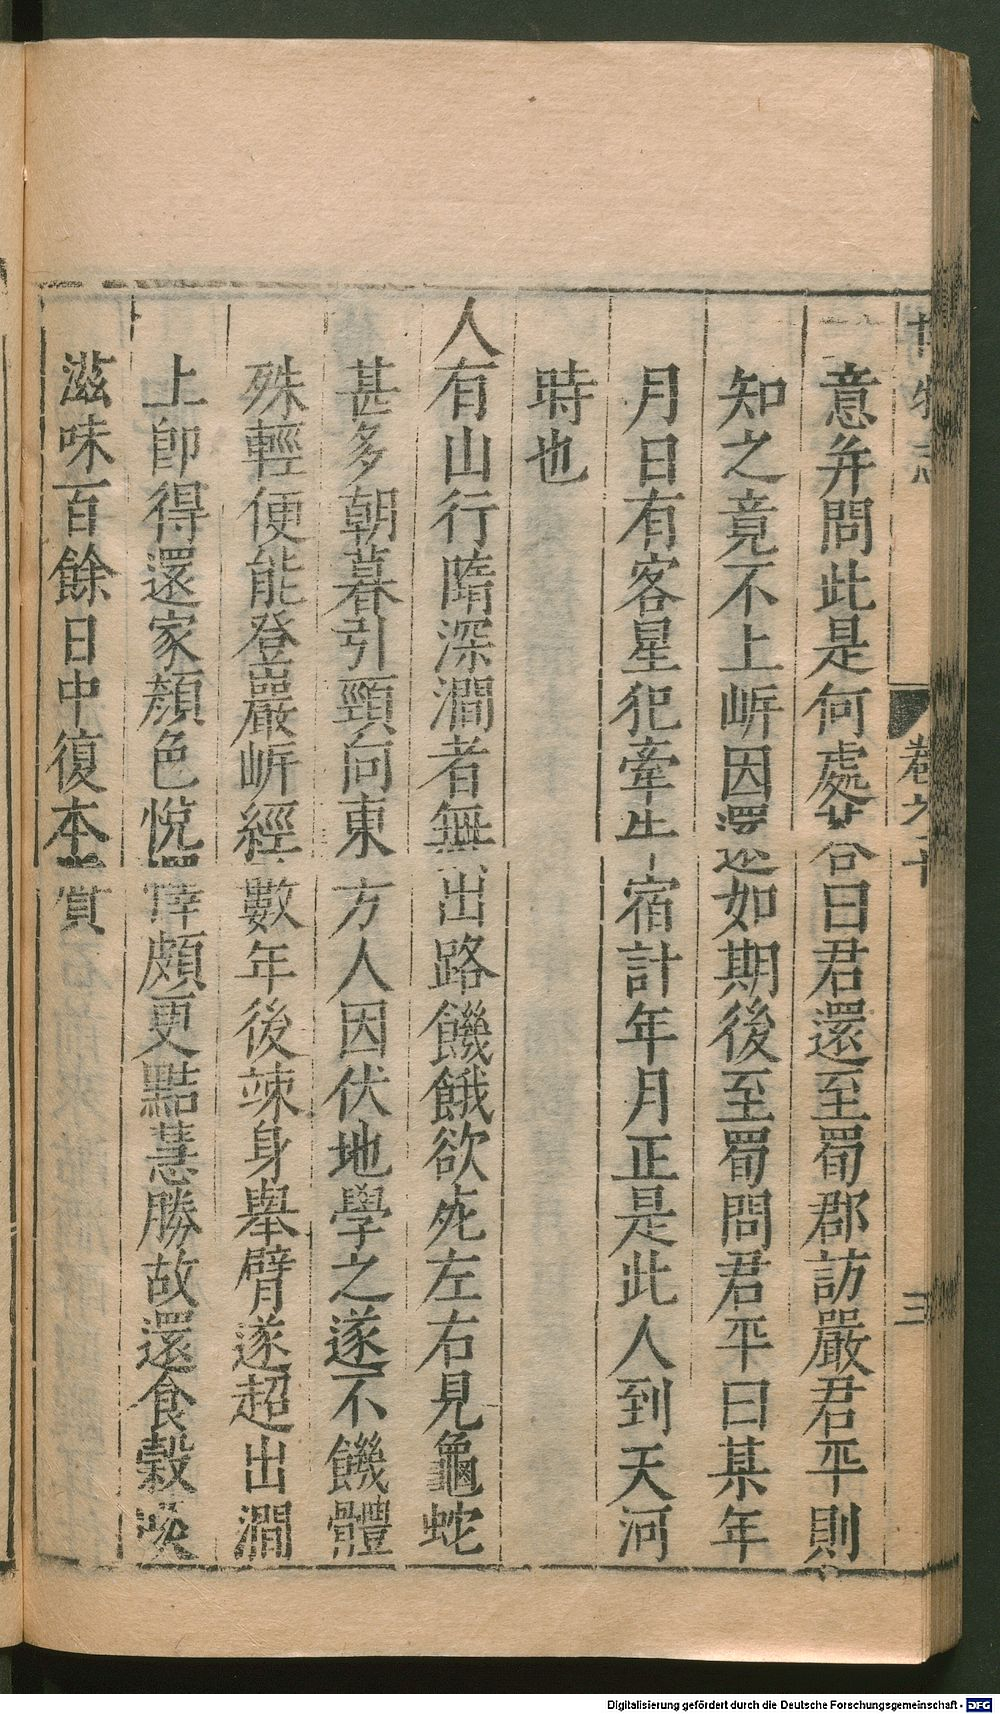 博物志 卷之十 三
意并問此是何處荅曰君還至蜀郡訪嚴君平則
知之竟不上岍因還還如期後至蜀問君平曰某年
月日有客星犯牽牛宿計年月正是此人到天河
時也
人有山行隋深澗者無出路饑餓欲死左右見龜蛇
甚多朝暮引頸向東方人因伏地學之遂不饑體
殊輕便能登巖岍經數年後竦身舉臂遂超出澗
上即得還家顏色悅懌頗更黠慧勝故還食穀
滋味百餘日中復本質
Digitalisierung gefördert durch die Deutsche Forschungsgemeinschaft - DFG